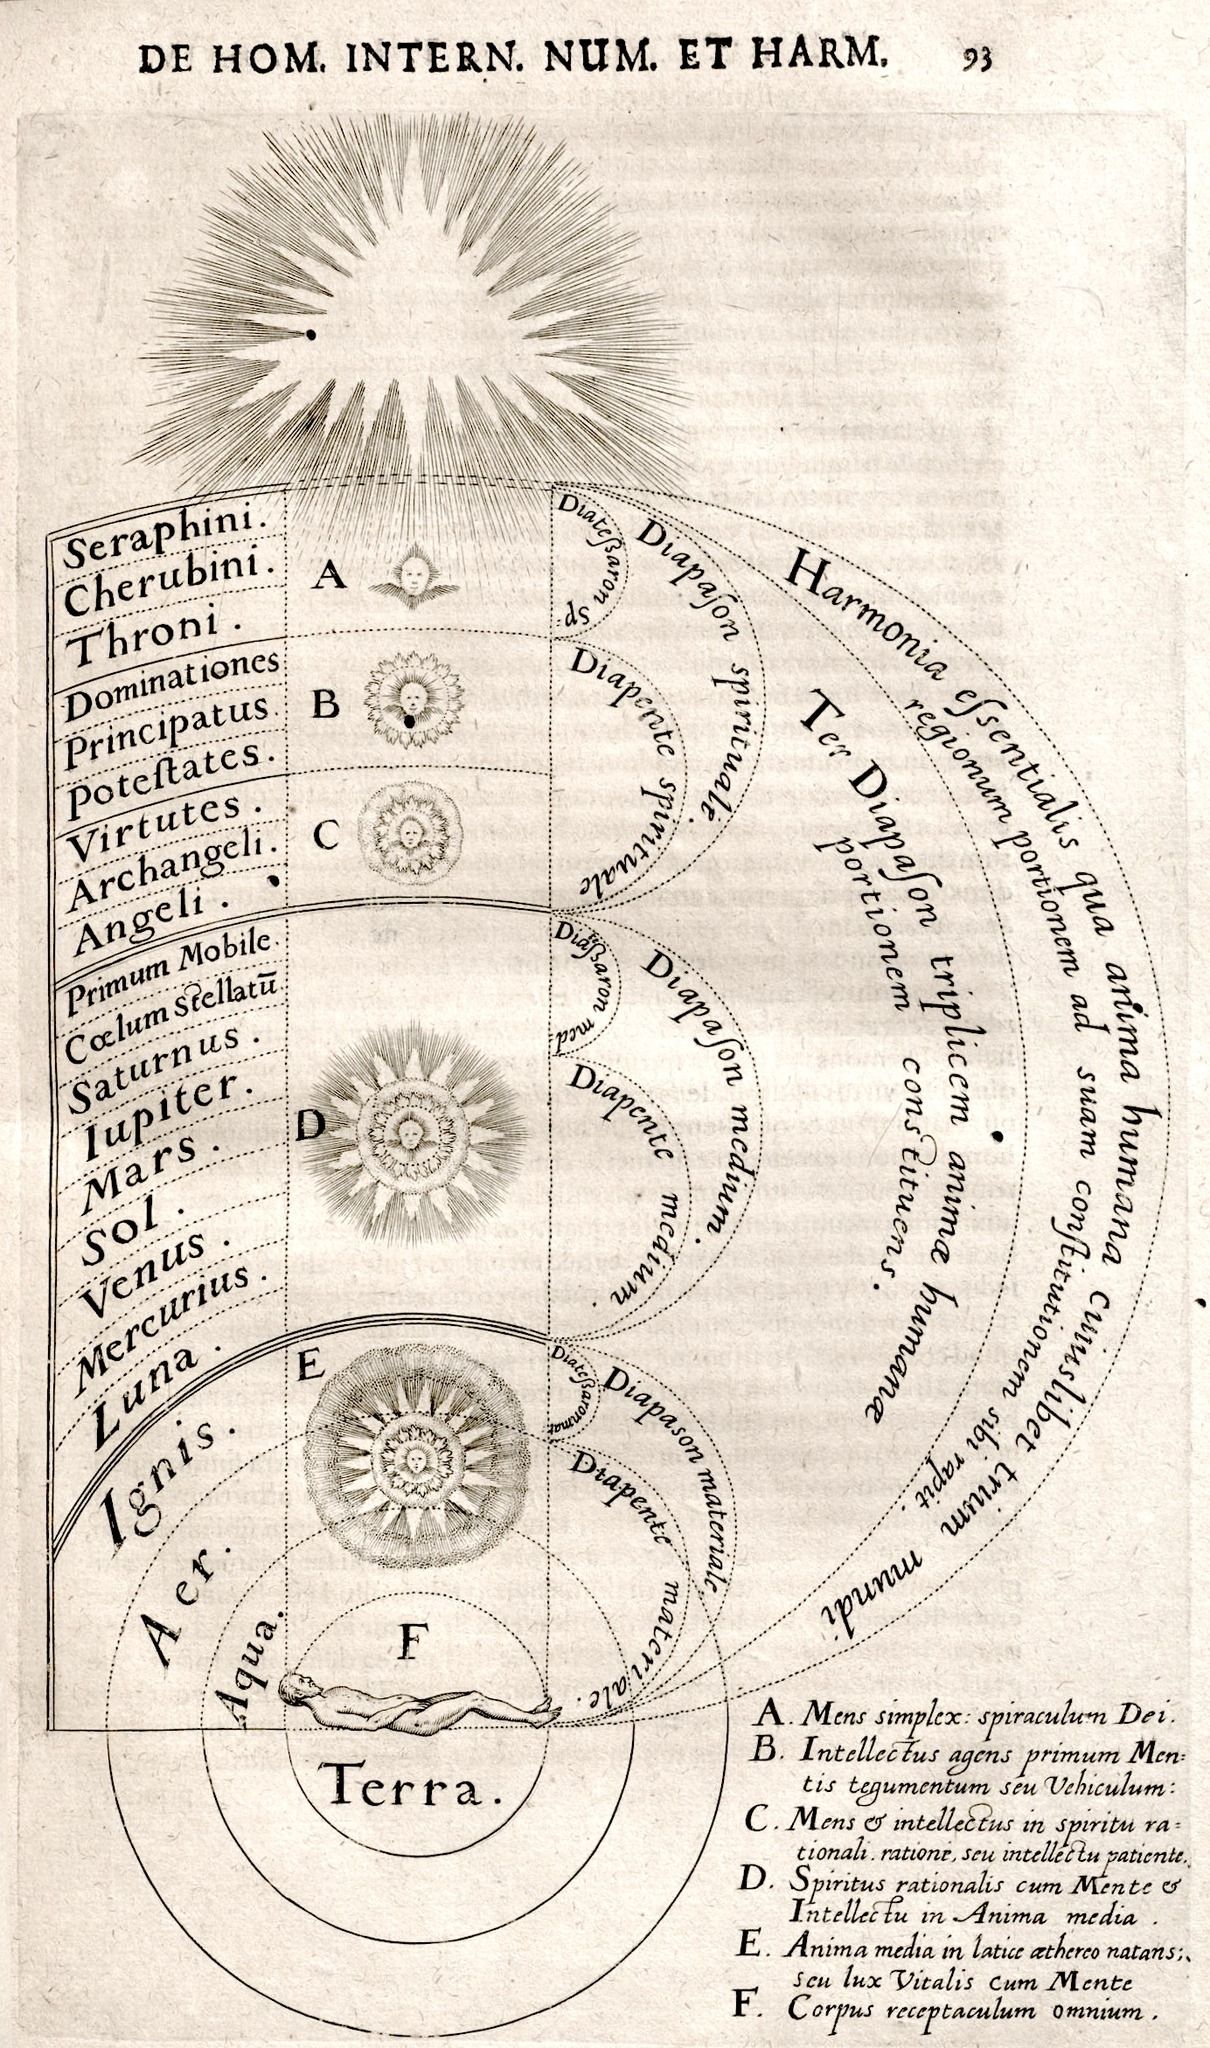 DE HOM. INTERN. NUM. ET HARM. 93
Seraphini.
Cherubini.
Throni.
Dominationes
Principatus
Poteſtates.
Virtutes.
Archangeli.
Angeli.
Primum Mobile
Cœlum Stellatū
Saturnus.
Iupiter.
Mars.
Sol.
Venus.
Mercurius.
Luna.
Ignis.
Aer.
Aqua.
Terra.
A
B
C
D
E
F
Diateßaron sp:
Diapaſon spirituale.
Diapente spirituale
Diateßaron med:
Diapaſon medium.
Diapente medium.
Diateßaron mat
Diapason materiale
Diapente materiale.
Ter Diapaſon triplicem animæ humanæ
portionem constituens.
Harmonia eſsentialis qua anima humana cuiuslibet trium mundi
regionum portionem ad suam conſtitutionem sibi rapit.
A. Mens simplex: spiraculum Dei.
B. Intellectus agens primum Men:
tis tegumentum seu Vehiculum:
C. Mens & intellectus in spiritu ra:
tionali. ratione, seu intellectu patiente.
D. Spiritus rationalis cum Mente &
Intellectu in Anima media.
E. Anima media in latice æthereo natans;
seu lux Vitalis cum Mente
F. Corpus receptaculum omnium.